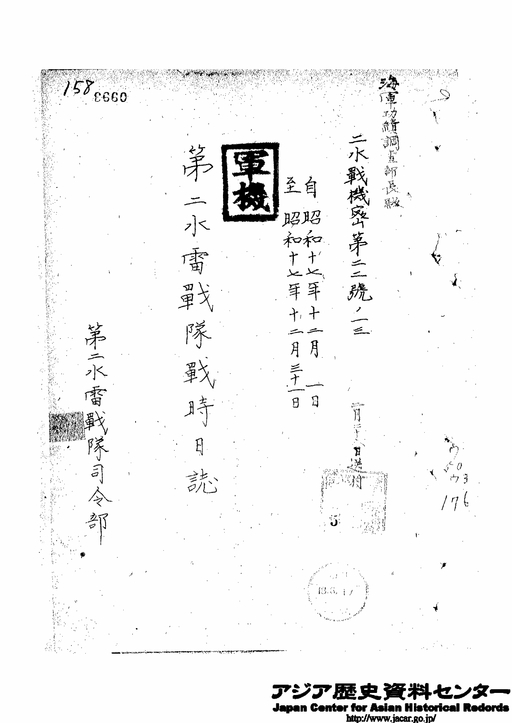 158
0993
海軍功績調査部長殿
二水戰機密第二二號ノ一三
自昭和十七年十二月 一日
至昭和十七年十二月三十一日
軍機
第二水雷戰隊戰時日誌
第二水雷戰隊司令部
5
176
アジア歴史資料センター
Japan Center for Asian Historical Redords
http://www.jacar.go.jp/